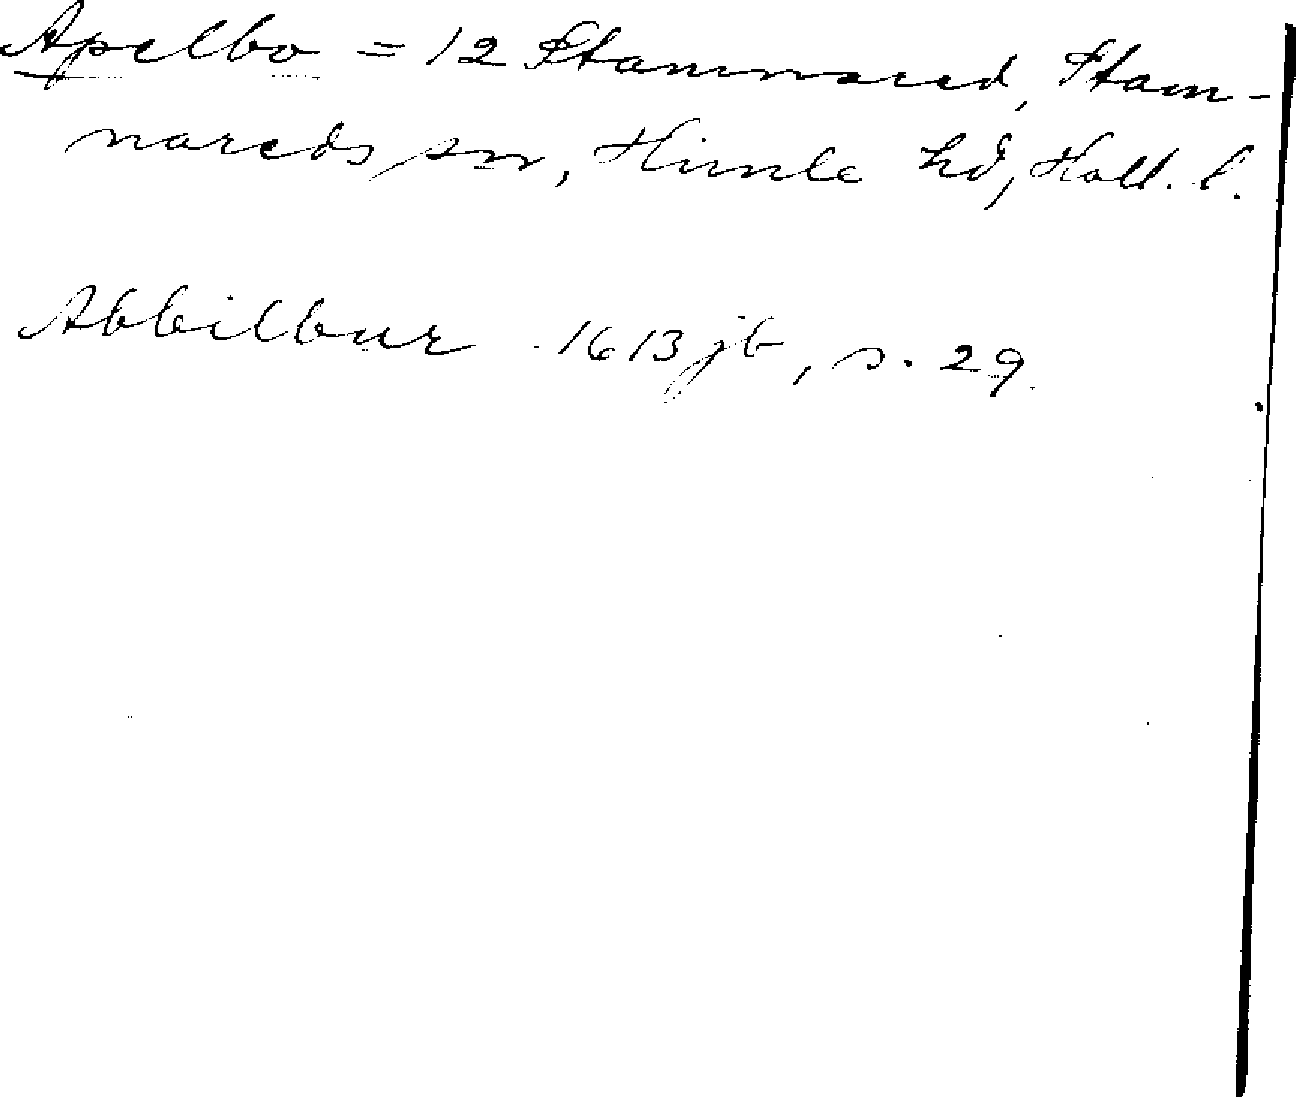 Apelbo = 12 Stamnared, Stam-
nareds sn, Himle hd, Hall. l.
Abbilbur 1613 jb, s. 29.